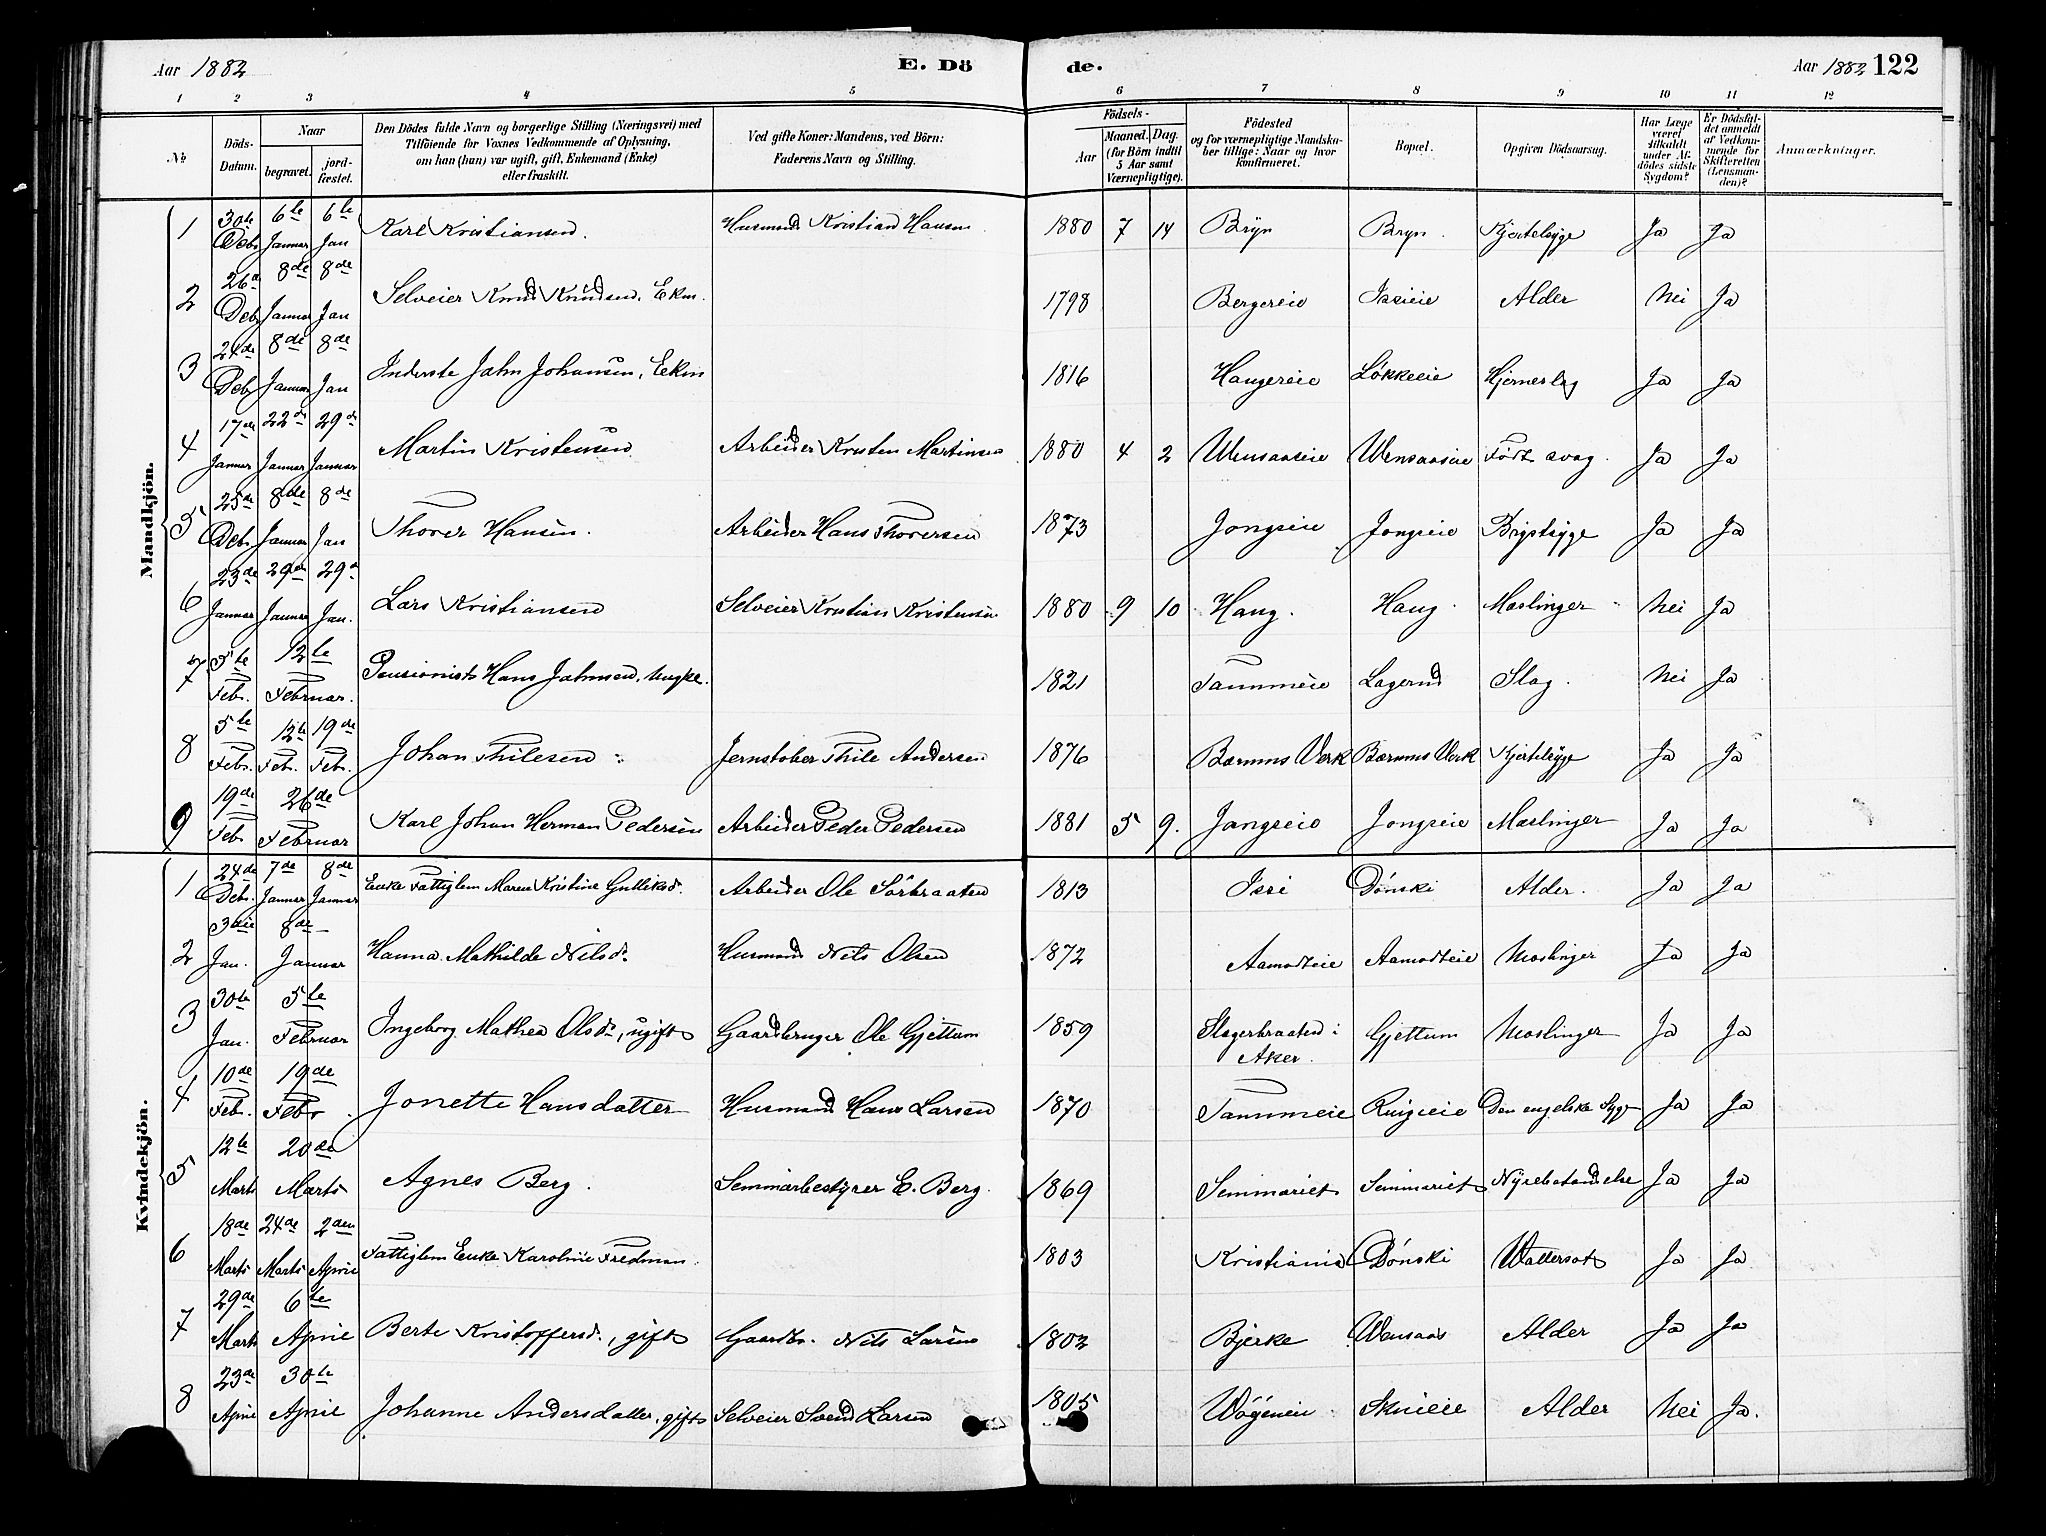 Aar 1882 E. Dö de. Aar 1882 122
1 2 3 4 5 6 7 8 9 10 11 12
No
Döds-Datum.
Naar
begravet.
jord-fæstet.
Den Dödes fulde Navn og borgerlige Stilling (Næringsvei) med
Tilföiende for Voxnes Vedkommende af Oplysning,
om han (hun) var ugift, gift, Enkemand (Enke)
eller fraskilt.
Ved gifte Koner: Mandens, ved Börn:
Faderens Navn og Stilling.
Födsels-
Aar
Maaned. Dag.
(for Börn indtil
5 Aar samt
Værnepligtige).
Födested
og for værnepligtige Mandska-
ber tillige: Naar og hvor
konfirmeret.
Bopæl.
Opgiven Dödsaarsag.
Har Læge
været
tilkaldt
under Af-
dödes sidste
Sygdom?
Er Dödsfal-
det anmeldt
af Vedkom-
mende for
Skifteretten
(Lensman-
den)?
Anmærkninger.
Mandkjön.
1 30te Debr 6te Januar 6te Jan Karl Kristiansen. Husmand Kristian Hansen 1880 7 14 Bryn Bryn. Kjertelsyge Ja Ja
2 26de Debr 8de Januar 8de Jan Selveier Knud Knudsen. Ekm. 1798 Bergereie Isieie Alder Nei Ja
3 24de Deb 8de Januar 8de Jan Inderste Jahn Johansen, Eekm 1816 Haugereie Løkkeeie Hjerneslag Ja Ja
4 17de Januar 22de Januar 29de Januar Martin Kristensen Arbeider Kristen Martinsen 1880 4 2 Wensaaseie Wensaaseie Født svag. Ja Ja
5 25de Debr 8de Januar 8de Jan Thorer Hansen. Arbeider Hans Thorersen 1873 Jongseie Jongseie Brystsyge Ja Ja
6 23de Januar 29de Januar 29de Jan. Lars Kristiansen Selveier Kristian Kristensen 1880 9 10 Haug. Haug. Mæslinger Nei Ja
7 5te Feb. 12te Februar. Pensionist Hans Jahnsen. Ungke. 1821 Tanumeie Lagerud Slag. Nei Ja
8 5te Feb. 12te Feb. 19de Feb. Johan Thilesen Jernstøber Thile Andersen 1876 Bærums Verk Bærums Verk Kjertelsyge Ja Ja
9 19de Feb. 26de Februar Karl Johan Herman Pedersen Arbeider Peder Pedersen 1881 5 9. Jongseie Jongseie Mæslinger Ja Ja
Kvindekjön.
1 24de Debr. 7de Januar 8de Januar Enke Fattiglem Maren Kristine Gulliksd. Arbeider Ole Sørbraaten 1813 Isi Dønski Alder. Ja Ja
2 3die Jan. 8de Januar Hanna Mathilde Nilsd. Husmand Nils Olsen 1872 Aamodteie Aamodteie Mæslinger Ja Ja
3 30te Jan. 5te Februar Ingeborg Mathea Olsd., ugift Gaardbruger Ole Gjettum 1859 Slagerbraaten i Aker. Gjettum Mæslinger Ja Ja
4 10de Feb. 19de Febr. Jonette Hansdatter Husmand Hans Larsen 1870 Tanumeie Ringieie Den engelske Syge Ja Ja
5 12te Marts 20de Marts Agnes Berg. Seminarbestyrer E. Berg. 1869 Seminariet Seminariet Nyrebetændelse Ja Ja
6 18de Marts 24de Marts 2den April Fattiglem Enke Karoline Fredman. 1803 Kristiania Dønski Wattersot Ja Ja
7 29de Marts 6te April Berte Kristoffersd., gift Gaardbr. Nils Larsen 1802 Bjerke Wensaas Alder Ja Ja
8 23de April 30te April Johanne Andersdatter, gift Selveier Svend Larsen 1805 Wøyeneie Skuieie Alder Nei Ja.